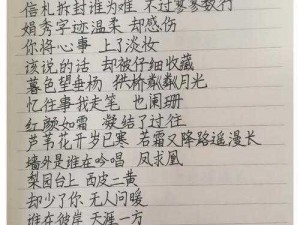 信札拆封谁为难 不过寥寥数行
娟秀字迹温柔 却感伤
你将心事 上了淡妆
该说的话 却被仔细收藏
暮色望垂杨 拱桥粼粼月光
忆往事我走笔 也阑珊
红颜如霜 凝结了过往
芦苇花开岁已寒 若霜又降路遥漫长
墙外是谁在吟唱 凤求凰
梨园台上 西皮二黄
却少了你 无人问暖
谁在彼岸 天涯一方